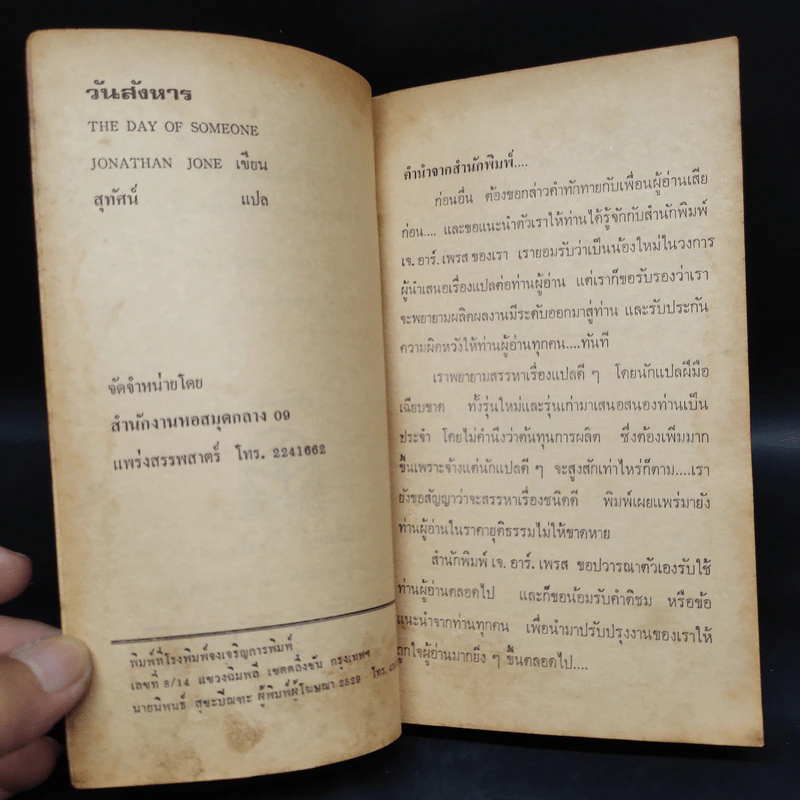 วันสังหาร
THE DAY OF SOMEONE
JONATHAN JONE เขียน
สุทัศน์ แปล
จัดจำหน่ายโดย
สำนักงานหอสมุดกลาง 09
แพร่งสรรพสาตร์ โทร. 2241662
พิมพ์ที่โรงพิมพ์จงเจริญการพิมพ์
เลขที่ 8/14 แขวงฉิมพลี เขตตลิ่งชัน กรุงเทพฯ
นายนิพนธ์ สุขะปิณฑะ ผู้พิมพ์ผู้โฆษณา 2529 โทร.
คำนำจากสำนักพิมพ์....
ก่อนอื่น ต้องขอกล่าวคำทักทายกับเพื่อนผู้อ่านเสีย
ก่อน.... และขอแนะนำตัวเราให้ท่านได้รู้จักกับสำนักพิมพ์
เจ. อาร์. เพรส ของเรา เรายอมรับว่าเป็นน้องใหม่ในวงการ
ผู้นำเสนอเรื่องแปลต่อท่านผู้อ่าน แต่เราก็ขอรับรองว่าเรา
จะพยายามผลิตผลงานมีระดับออกมาสู่ท่าน และรับประกัน
ความผิดหวังให้ท่านผู้อ่านทุกคน....ทันที
เราพยายามสรรหาเรื่องแปลดี ๆ โดยนักแปลฝีมือ
เฉียบขาด ทั้งรุ่นใหม่และรุ่นเก่ามาเสนอสนองท่านเป็น
ประจำ โดยไม่คำนึงว่าต้นทุนการผลิต ซึ่งต้องเพิ่มมาก
ขึ้นเพราะจ้างแต่นักแปลดี ๆ จะสูงสักเท่าไหร่ก็ตาม....เรา
ยังขอสัญญาว่าจะสรรหาเรื่องชนิดดี พิมพ์เผยแพร่มายัง
ท่านผู้อ่านในราคายุติธรรมไม่ให้ขาดหาย
สำนักพิมพ์ เจ. อาร์. เพรส ขอปวารณาตัวเองรับใช้
ท่านผู้อ่านตลอดไป และก็ขอน้อมรับคำติชม หรือข้อ
แนะนำจากท่านทุกคน เพื่อนำมาปรับปรุงงานของเราให้
ถูกใจผู้อ่านมากยิ่ง ๆ ขึ้นตลอดไป....